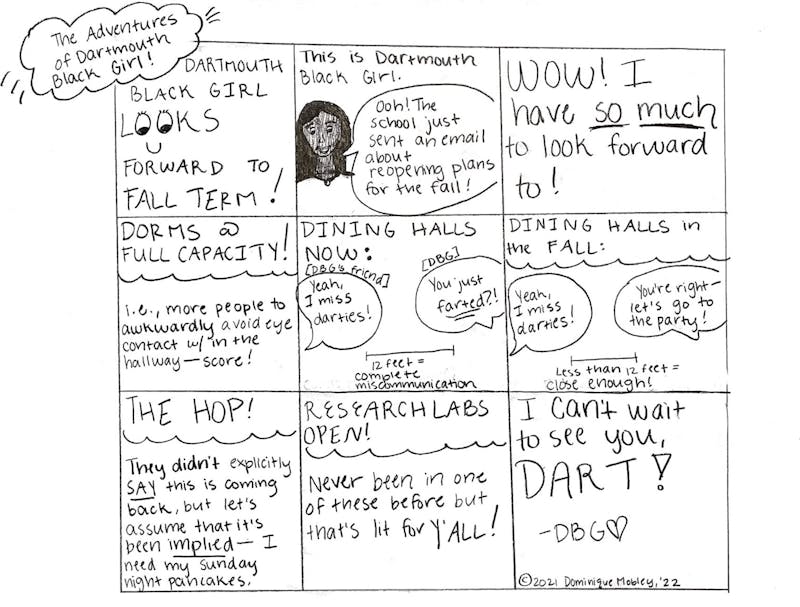 The Adventures
of Dartmouth
Black Girl!
DARTMOUTH
BLACK GIRL
LOOKS
FORWARD TO
FALL TERM!
This is Dartmouth
Black Girl.
Ooh! The
school just
sent an email
about
reopening plans
for the fall!
WOW! I
have so much
to look forward
to!
DORMS @
FULL CAPACITY!
i.e., more people to
awkwardly avoid eye
contact w/ in the
hallway—score!
DINING HALLS
NOW:
[DBG's friend]
Yeah,
I miss
darties!
[DBG]
You just
farted?!
12 feet =
complete
miscommunication
DINING HALLS in
the FALL:
Yeah,
I miss
darties!
You're right—
let's go to
the party!
Less than 12 feet =
close enough!
THE HOP!
They didn't explicitly
SAY this is coming
back, but let's
assume that it's
been implied— I
need my Sunday
night pancakes.
RESEARCH LABS
OPEN!
Never been in one
of these before but
that's lit for Y'ALL!
I can't wait
to see you,
DART!
-DBG♡
©2021 Dominique Mobley, '22